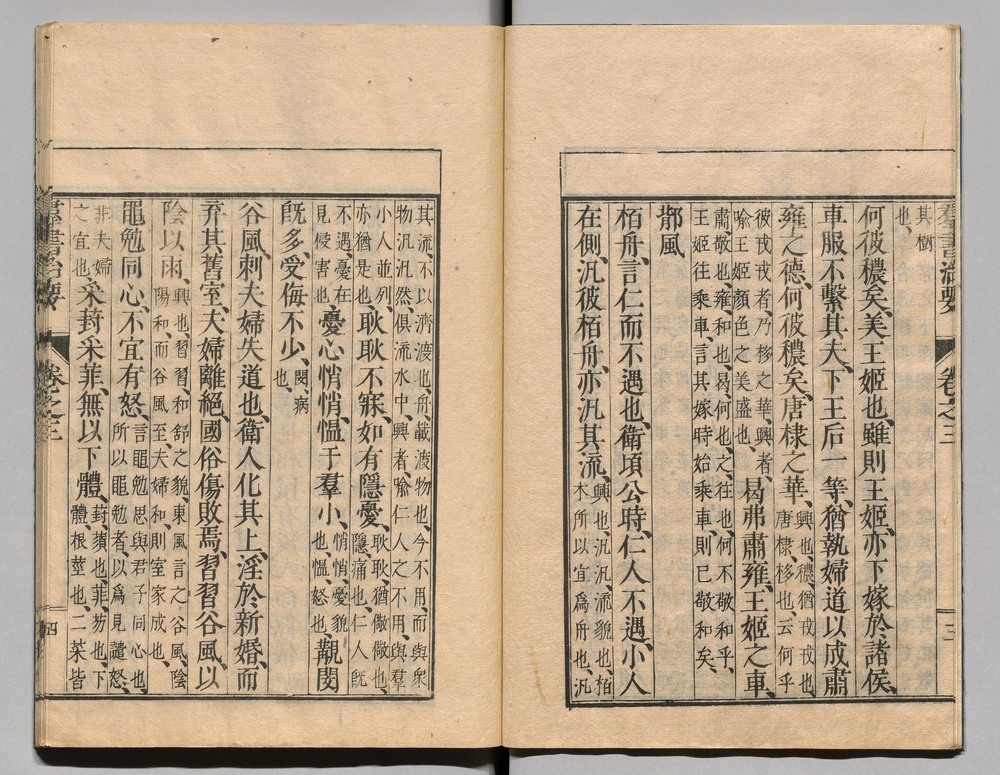 羣書治要 卷之三 三
其樹
也、
何彼穠矣、美王姬也、雖則王姬、亦下嫁於諸侯、
車服不繫其夫、下王后一等、猶執婦道、以成肅
雍之德、何彼穠矣、唐棣之華、興也、穠猶戎戎也、
唐棣、栘也、云何乎
彼戎戎者、乃栘之華、興者、
喩王姬顏色之美盛也、曷弗肅雍、王姬之車、
肅敬也、雍和也、曷何也、之往也、何不敬和乎、
王姬往乘車、言其嫁時始乘車、則已敬和矣、
鄁風
栢舟、言仁而不遇也、衛頃公時、仁人不遇、小人
在側、汎彼栢舟、亦汎其流、興也、汎汎流貌也、栢
木所以宜爲舟也、汎
其流、不以濟渡也、舟、載渡物也、今不用、而與衆
物汎汎然、俱流水中、興者、喩仁人之不用、與羣
小人並列、
亦猶是也、耿耿不寐、如有隱憂、耿耿、猶儆儆也、
隱、痛也、仁人旣
不遇、憂在
見侵害也、憂心悄悄、慍于羣小、悄悄、憂貌
也、慍、怒也、覯閔
旣多、受侮不少、閔、病
也、
谷風、刺夫婦失道也、衛人化其上、淫於新婚、而
弃其舊室、夫婦離絕、國俗傷敗焉、習習谷風、以
陰以雨、興也、習習、和舒之貌、東風言之谷風、陰
陽和而谷風至、夫婦和、則室家成也、
黽勉同心、不宜有怒、言黽勉思與君子同心也、
所以黽勉者、以爲見譴怒、
非夫婦
之宜也、采葑采菲、無以下體、葑、蕦也、菲、芴也、下
體、根莖也、二菜皆
羣書治要 卷之三 四